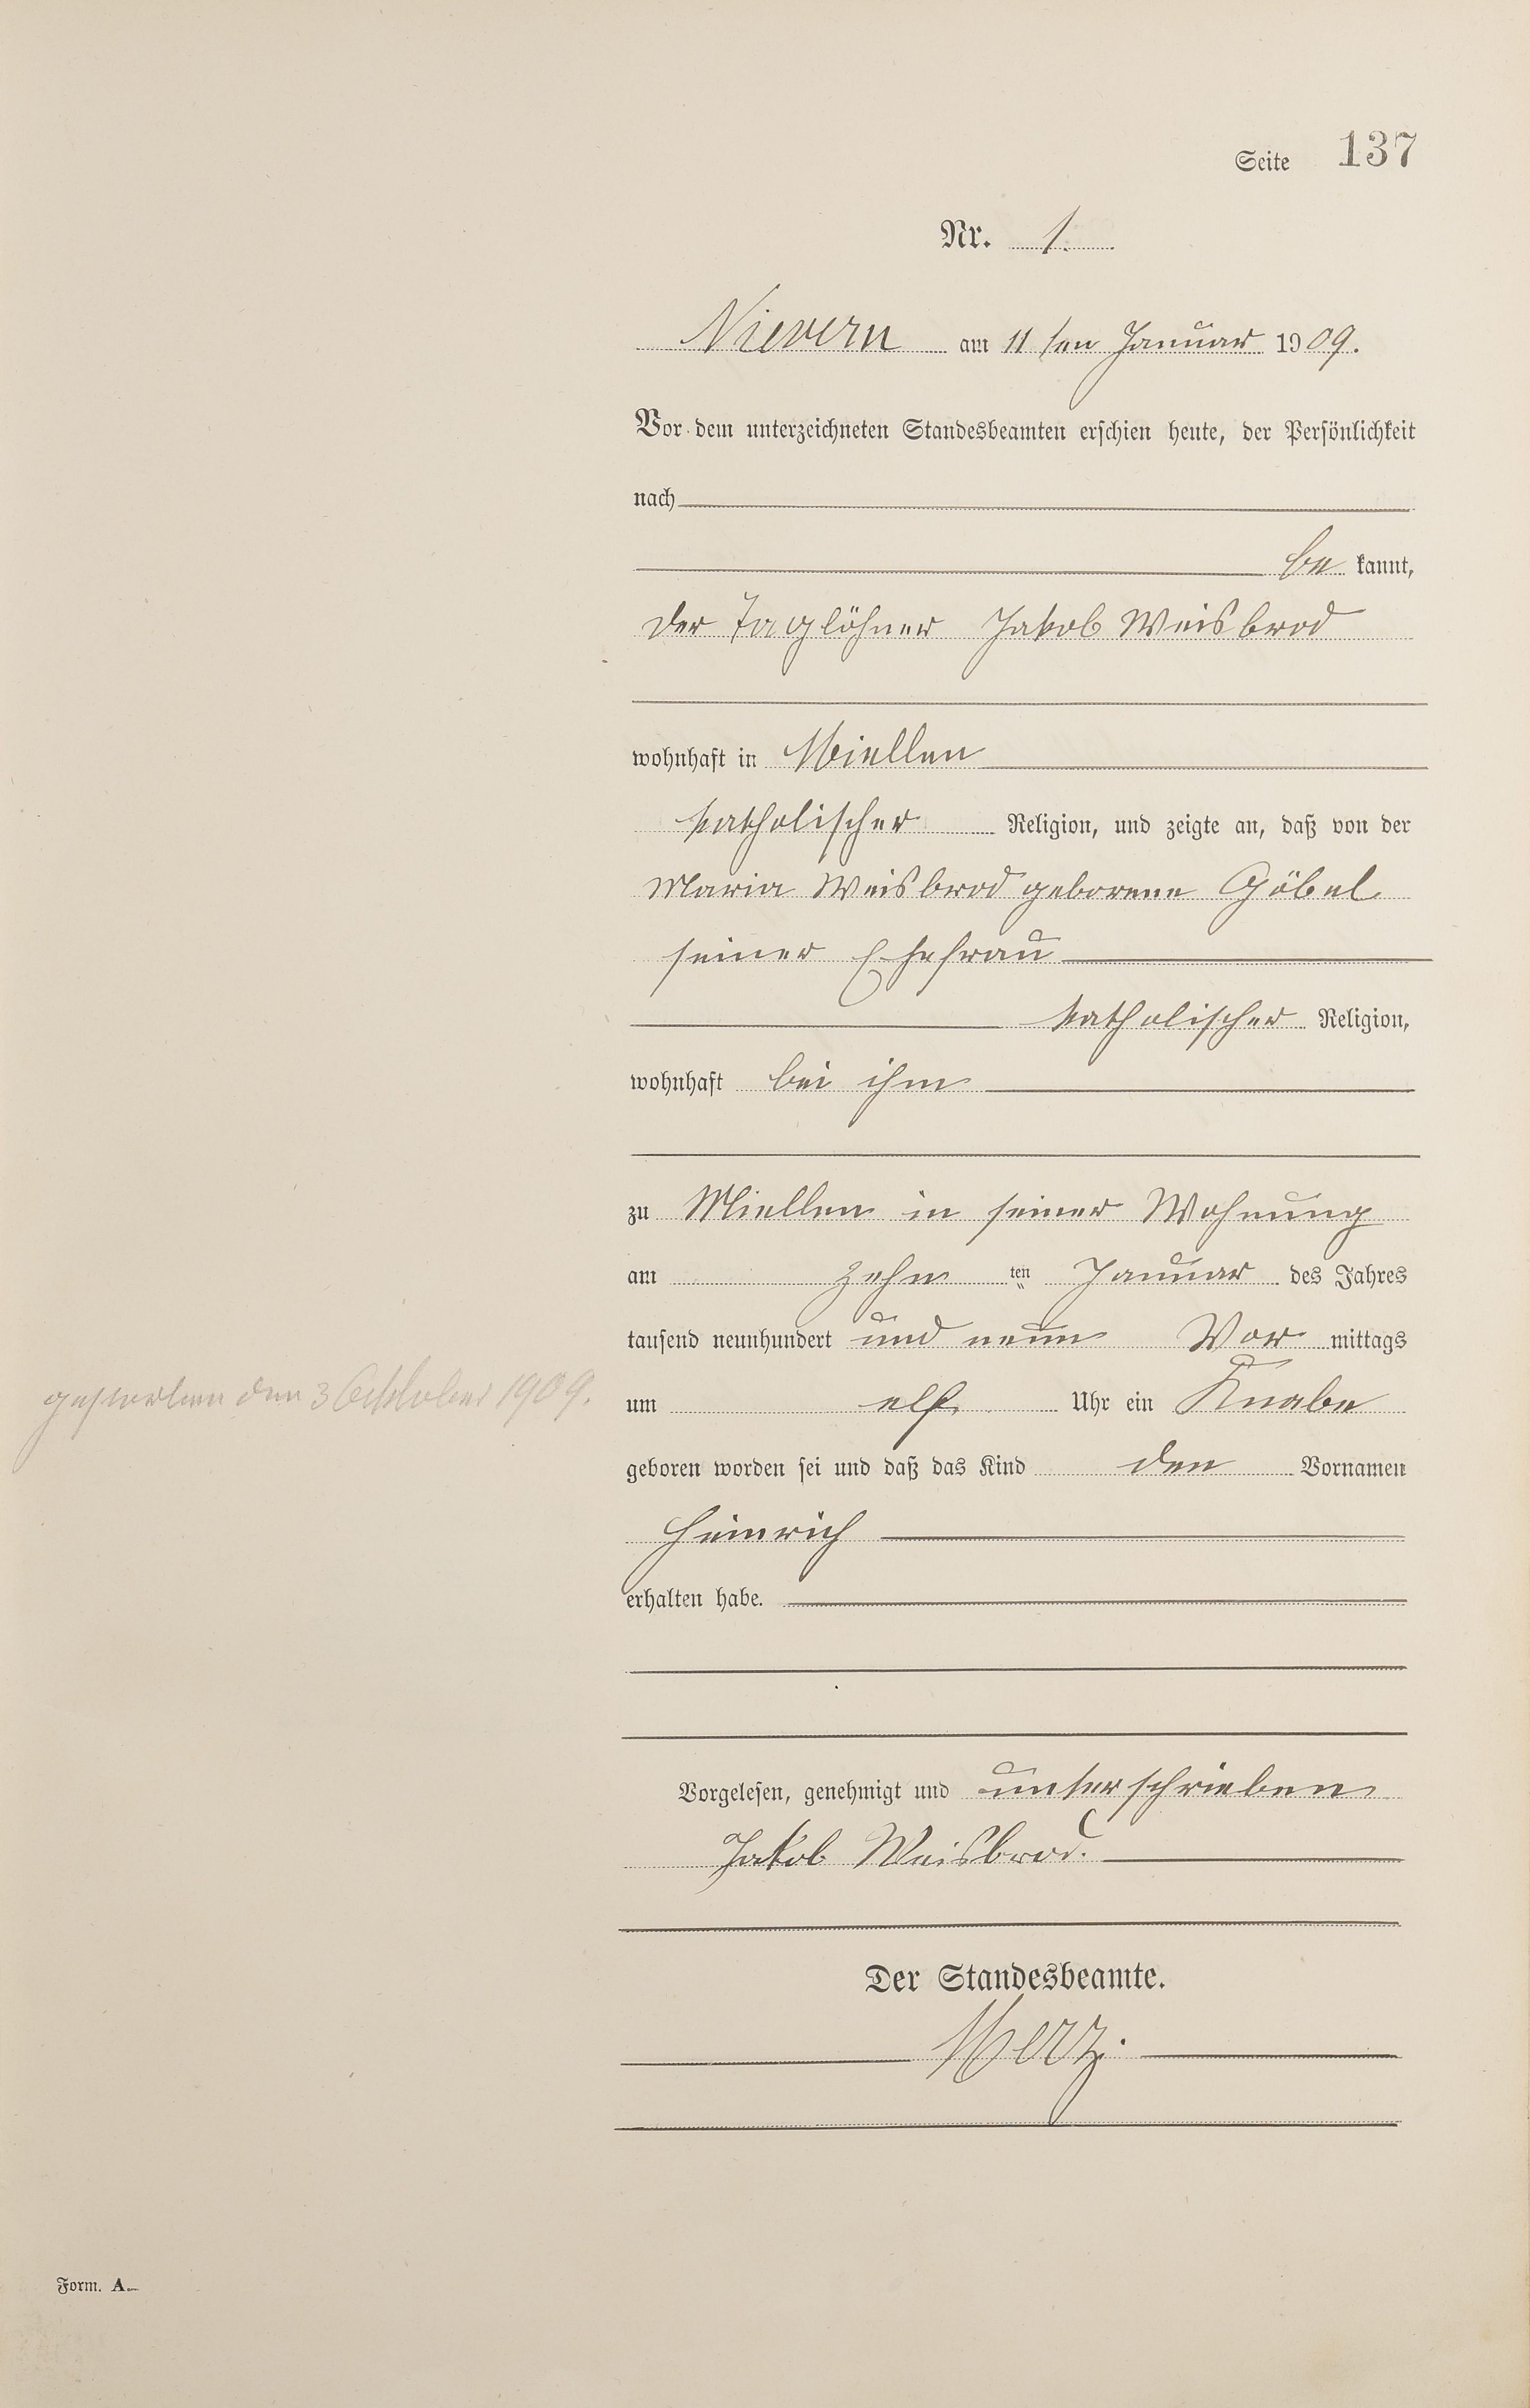 Seite 137
Nr. 1.
Nievern am 11 ten Januar 1909.
Vor dem unterzeichneten Standesbeamten erschien heute, der Persönlichkeit
nach
be kannt,
der Taglöhner Jakob Weisbrod
wohnhaft in Miellen
katholischer Religion, und zeigte an, daß von der
Maria Weisbrod geborene Göbel
seiner Ehefrau
katholischer Religion,
wohnhaft bei ihm
zu Miellen in seiner Wohnung
am zehn ten Januar des Jahres
tausend neunhundert und neun Vor mittags
um elf Uhr ein Knabe
geboren worden sei und daß das Kind den Vornamen
Heinrich
erhalten habe.
gestorben den 3 Oktober 1909.
Vorgelesen, genehmigt und unterschrieben
Jakob Weisbrod.
Der Standesbeamte.
Merz.
Form. A.